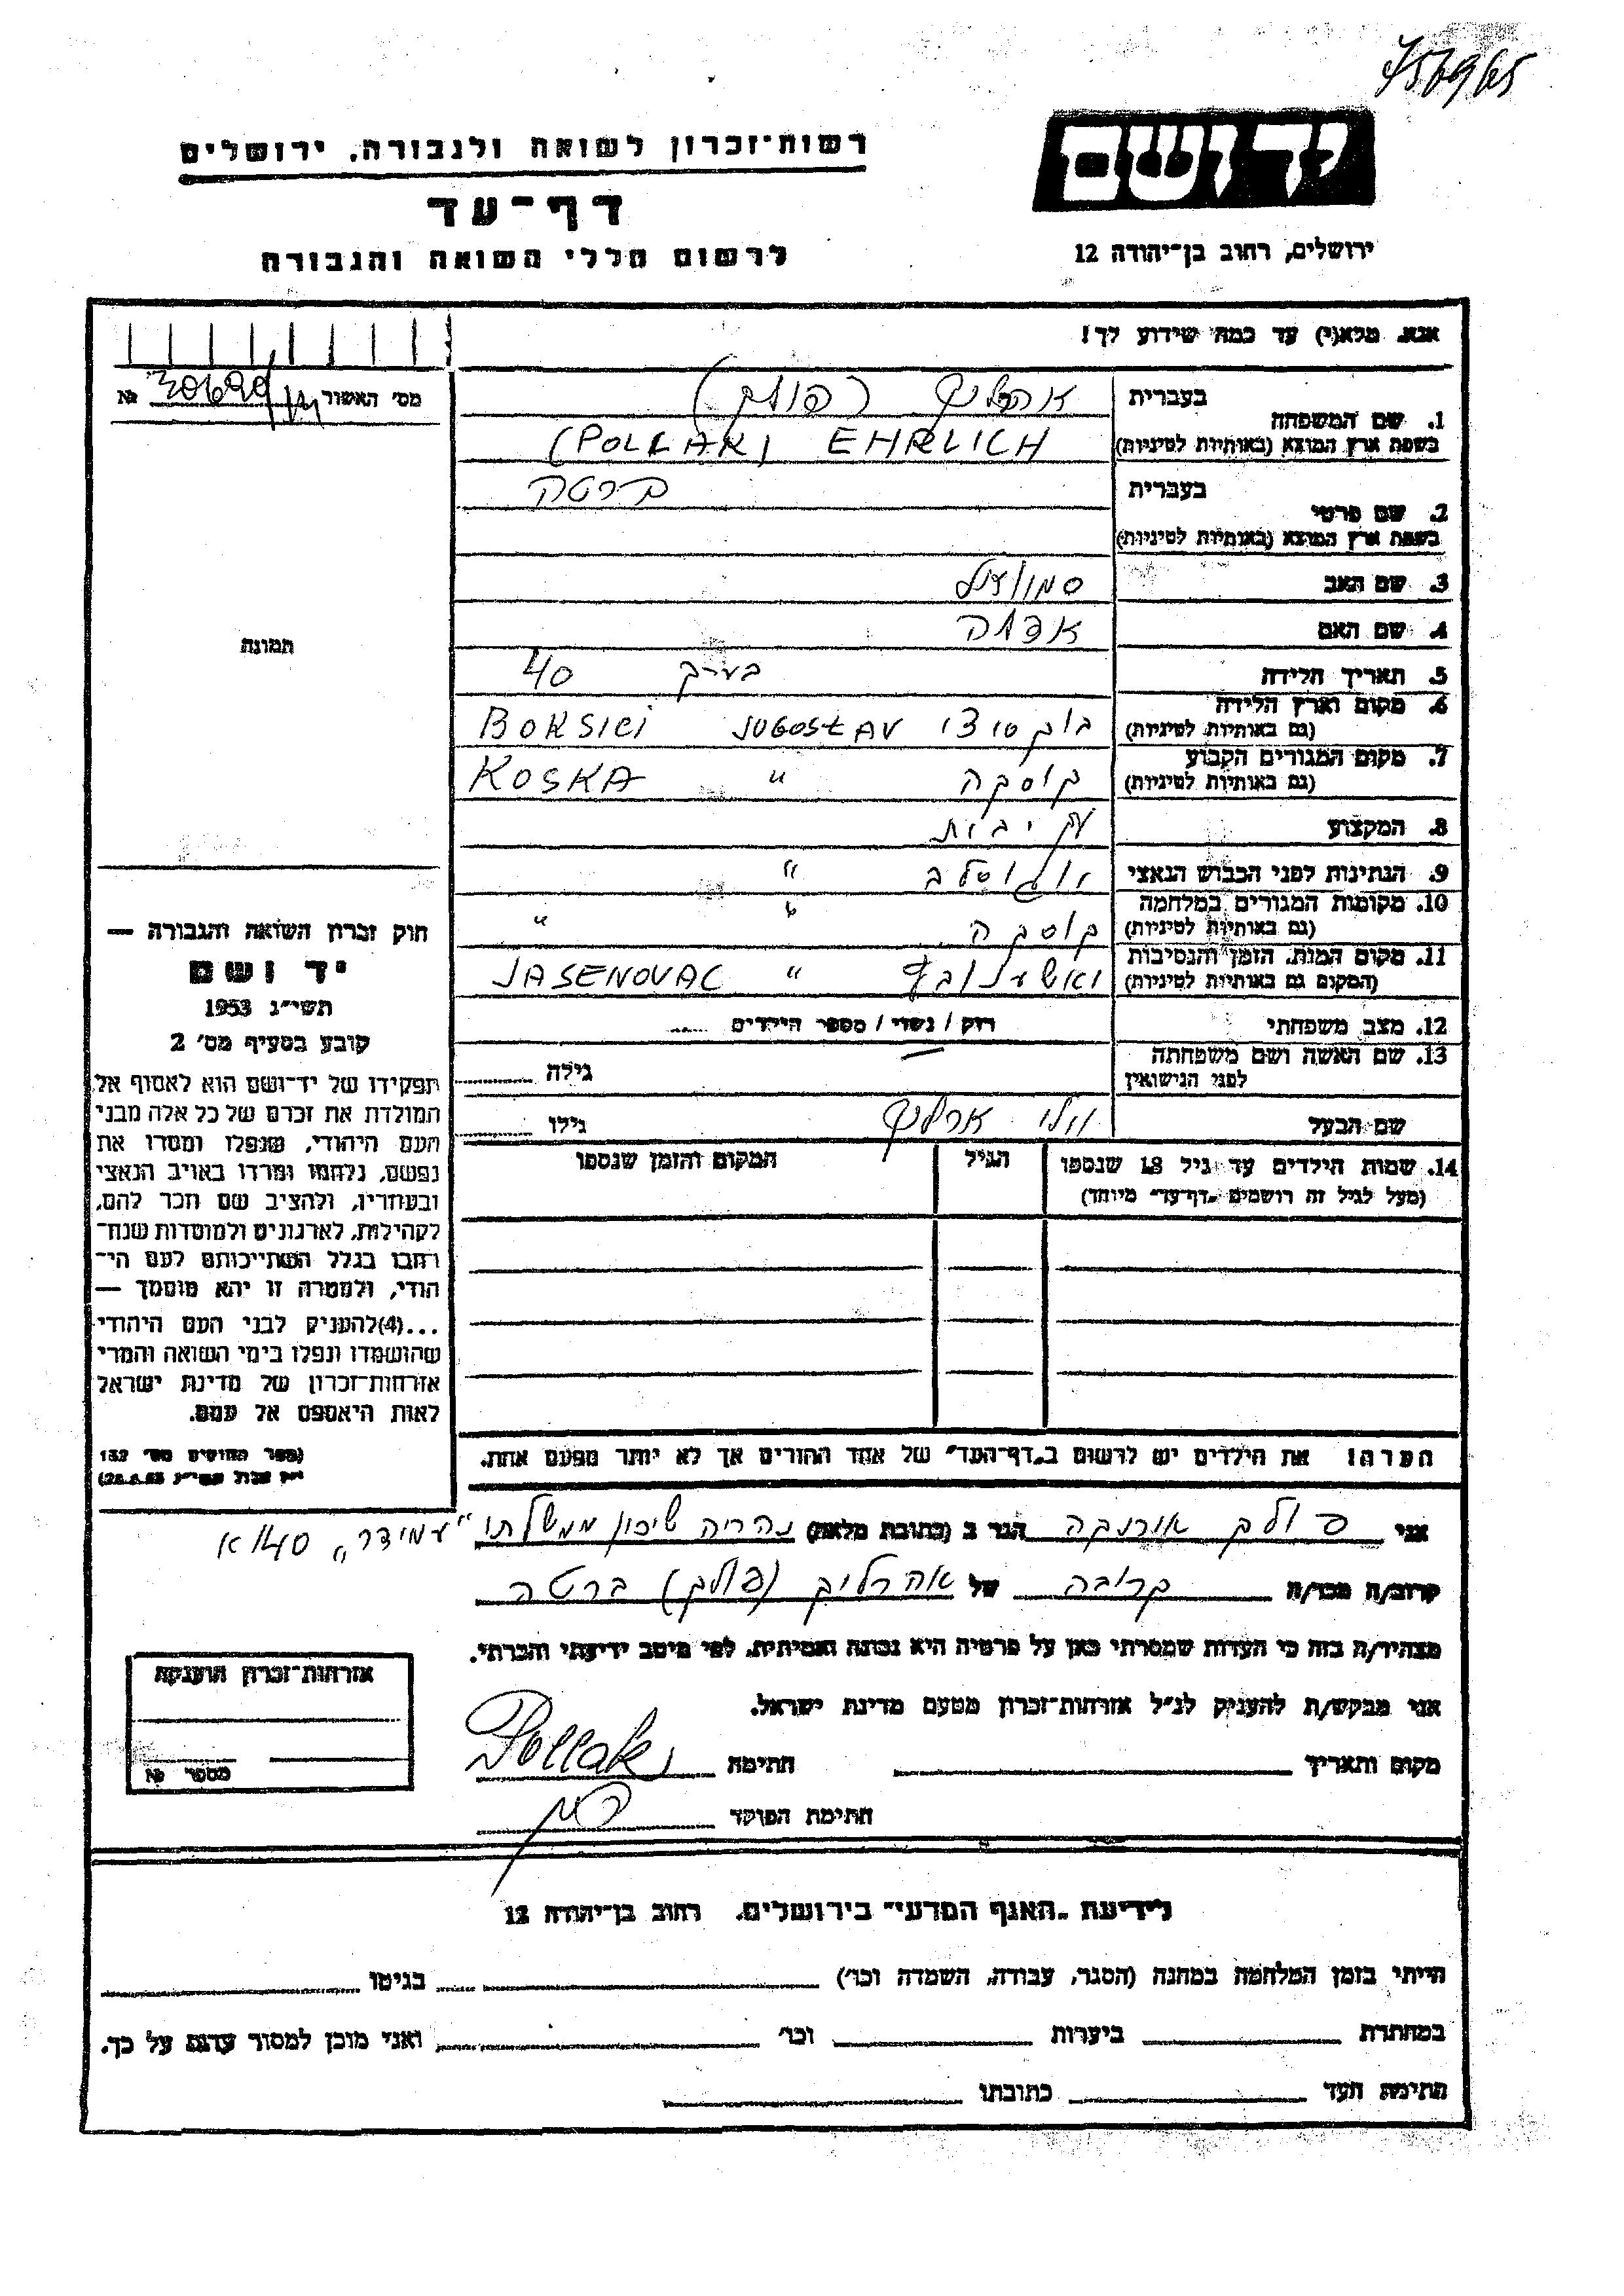 רשות־זכרון לשואה ולגבורה, ירושלים
דף־עד
לרשום חללי השואה והגבורה
יד ושם
ירושלים, רחוב בן־יהודה 12
אנא, מלא(י) עד כמה שידוע לך!
מס' האשור
№
1. שם המשפחה
בעברית
(פולק)
בשפת ארץ המוצא (באותיות לטיניות)
(POLLAK) EHRLICH
2. שם פרטי
בעברית
ברטה
בשפת ארץ המוצא (באותיות לטיניות)
3. שם האב
סמואל
4. שם האם
5. תאריך הלידה
בערך 40
6. מקום וארץ הלידה
(גם באותיות לטיניות)
JUGOSLAV BOKSICI
7. מקום המגורים הקבוע
(גם באותיות לטיניות)
קוסקה " KOSKA
8. המקצוע
9. הנתינות לפני הכבוש הנאצי
"
10. מקומות המגורים במלחמה
(גם באותיות לטיניות)
קוסקה " "
11. מקום המות, הזמן והנסיבות
(המקום גם באותיות לטיניות)
" JASENOVAC
12. מצב משפחתי
רווק / נשוי / מספר הילדים
13. שם האשה ושם משפחתה
לפני הנישואין
גילה
שם הבעל
וילי ארליך
גילו
14. שמות הילדים עד גיל 18 שנספו
(מעל לגיל זה רושמים „דף־עד” מיוחד)
הגיל
המקום והזמן שנספו
הערה! את הילדים יש לרשום ב„דף־העד” של אחד ההורים אך לא יותר מפעם אחת.
תמונה
חוק זכרון השואה והגבורה —
יד ושם
תשי״ג 1953
קובע בסעיף מס' 2
תפקידו של יד־ושם הוא לאסוף אל
המולדת את זכרם של כל אלה מבני
העם היהודי, שנפלו ומסרו את
נפשם, נלחמו ומרדו באויב הנאצי
ובעוזריו, ולהציב שם וזכר להם,
לקהילות, לארגונים ולמוסדות שנח־
רחבו בגלל השתייכותם לעם הי־
הודי, ולמטרה זו יהא מוסמך —
...(4) להעניק לבני העם היהודי
שהושמדו ונפלו בימי השואה והמרי
אזרחות־זכרון של מדינת ישראל
לאות היאספם אל עמם.
(ספר החוקים מס' 132
אני פולק הגר ב (כתובת מלאה) נהריה שיכון ממשלתי "עמידר" 140 א
קרוב/ה מכר/ה קרובה של אהרליך (פולק) ברטה
מצהיר/ה בזה כי העדות שמסרתי כאן על פרטיה היא נכונה ואמיתית, לפי מיטב ידיעתי והכרתי.
אני מבקש/ת להעניק לנ״ל אזרחות־זכרון מטעם מדינת ישראל.
מקום ותאריך
חתימה Pollak
חתימת הפוקד
אזרחות־זכרון הוענקה
מספר №
לידיעת „האגף המדעי” בירושלים, רחוב בן־יהודה 12
הייתי בזמן המלחמה במחנה (הסגר, עבודה, השמדה וכו') בגיטו
במחתרת ביערות וכו' ואני מוכן למסור עדות על כך.
חתימת העד כתובתו